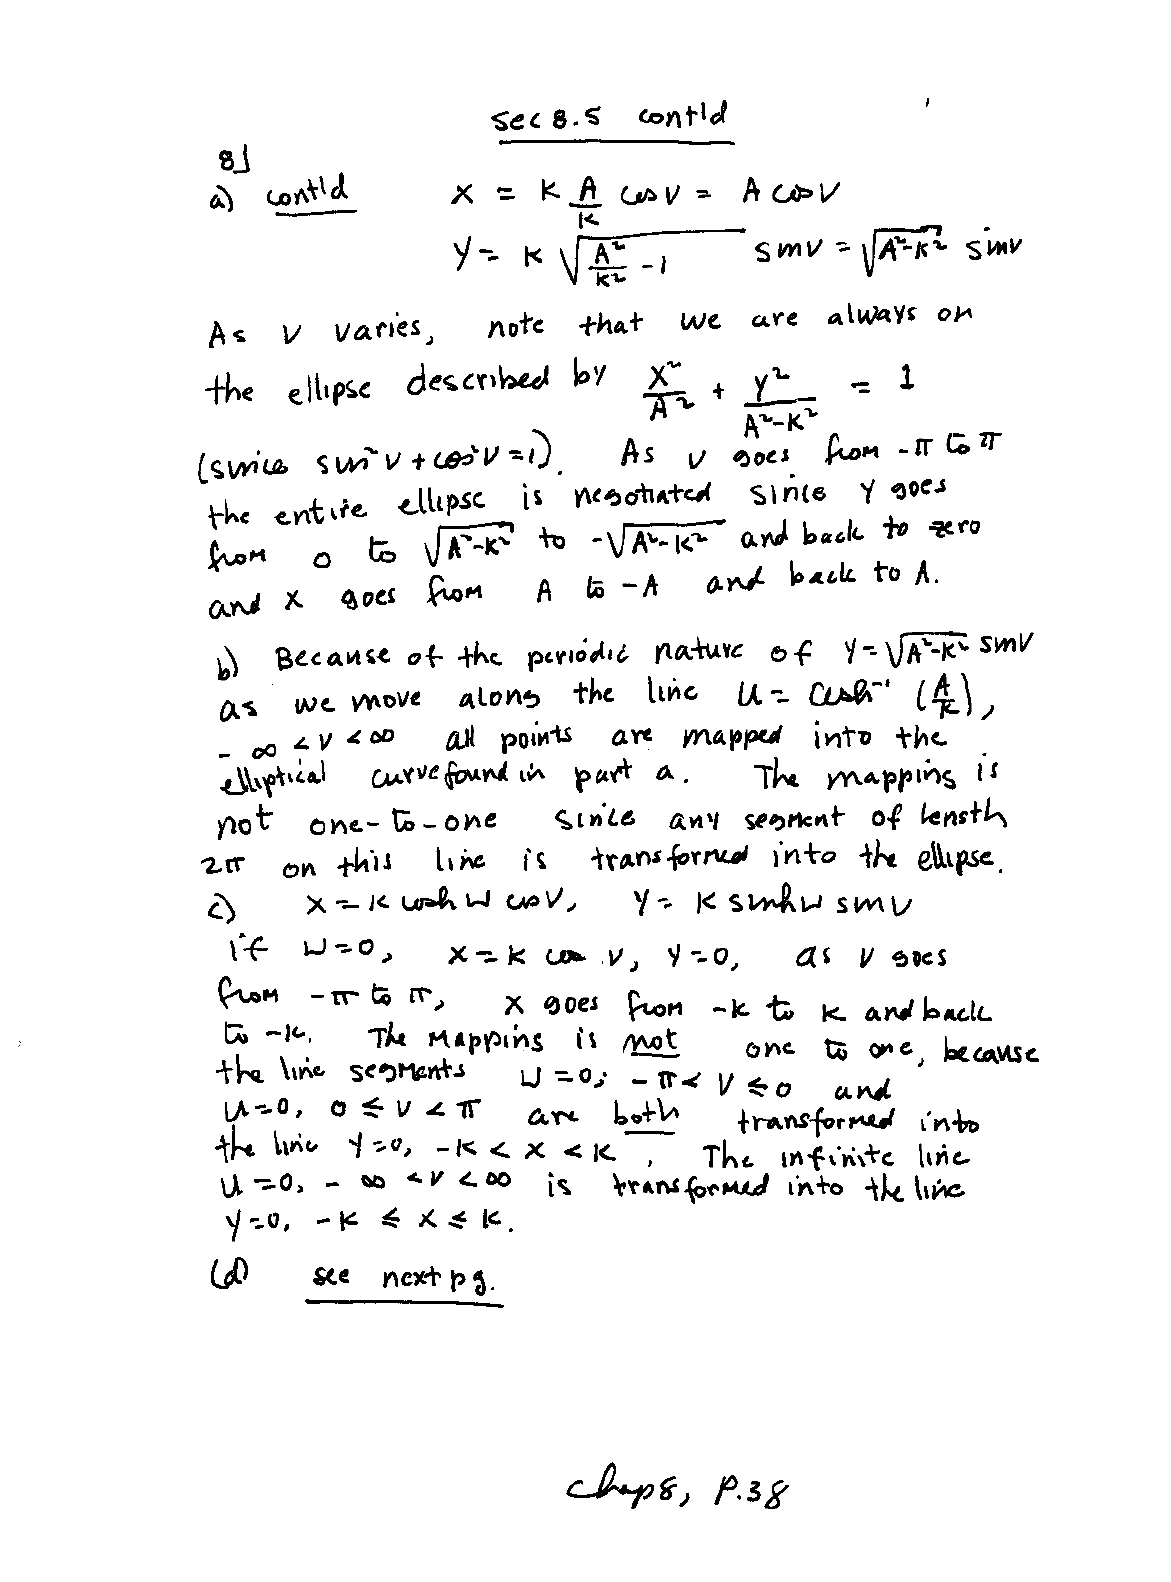 sec 8.5 cont'd
8]
a) cont'd x = k A/k cos v = A cos v
y = k √(A²/k² - 1) sin v = √(A²-k²) sin v
As v varies, note that we are always on
the ellipse described by x²/A² + y²/(A²-k²) = 1
(since sin² v + cos² v = 1). As v goes from -π to π
the entire ellipse is negotiated since y goes
from 0 to √(A²-k²) to -√(A²-k²) and back to zero
and x goes from A to -A and back to A.
b) Because of the periodic nature of y = √(A²-k²) sin v
as we move along the line u = cosh⁻¹ (A/k),
-∞ < v < ∞ all points are mapped into the
elliptical curve found in part a. The mapping is
not one-to-one since any segment of length
2π on this line is transformed into the ellipse.
c) x = k cosh u cos v, y = k sinh u sin v
if u = 0, x = k cos v, y = 0, as v goes
from -π to π, x goes from -k to k and back
to -k. The mapping is not one to one, because
the line segments u = 0; -π < v ≤ 0 and
u = 0, 0 ≤ v < π are both transformed into
the line y = 0, -k < x < k. The infinite line
u = 0, -∞ < v < ∞ is transformed into the line
y = 0, -k ≤ x ≤ k.
(d) see next pg.
chap 8, p.38